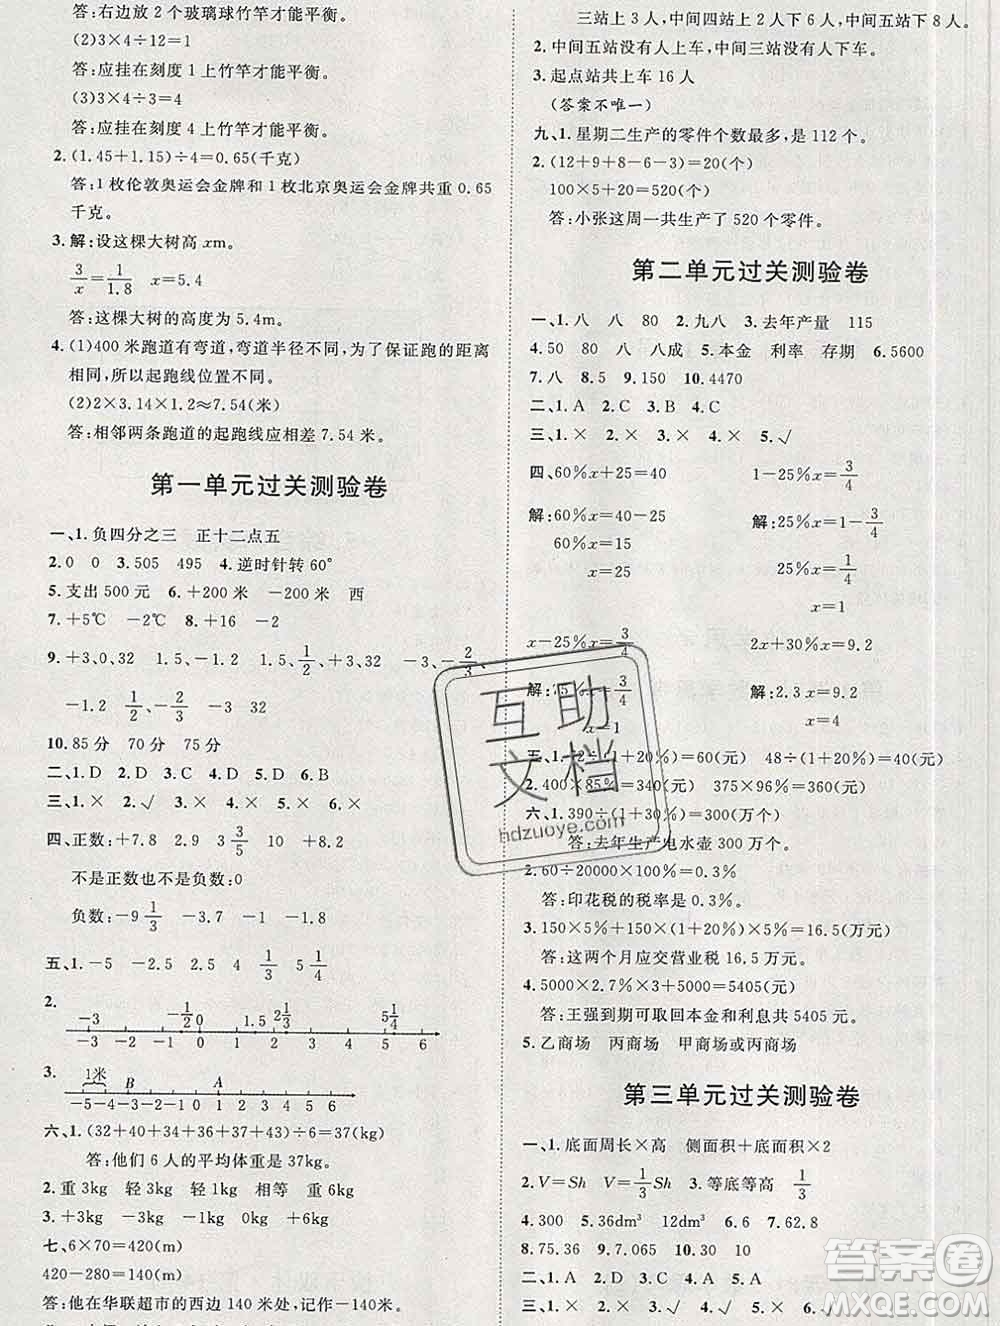 答:右边放 2 个玻璃球竹竿才能平衡。
(2)3×4÷12=1
答:应挂在刻度 1 上竹竿才能平衡。
(3)3×4÷3=4
答:应挂在刻度 4 上竹竿才能平衡。
2.(1.45+1.15)÷4=0.65(千克)
答:1 枚伦敦奥运会金牌和 1 枚北京奥运会金牌共重 0.65
千克。
3.解:设这棵大树高 xm。
3/x=1/1.8 x=5.4
答:这棵大树的高度为 5.4m。
4.(1)400 米跑道有弯道,弯道半径不同,为了保证跑的距离
相同,所以起跑线位置不同。
(2)2×3.14×1.2≈7.54(米)
答:相邻两条跑道的起跑线应相差 7.54 米。
第一单元过关测验卷
一、1.负四分之三 正十二点五
2.0 0 3.505 495 4.逆时针转 60°
5.支出 500 元 6.+200 米 −200 米 西
7.+5℃ −2℃ 8.+16 −2
9.+3、0、32 1.5、−1.2 1.5、1/2、+3、32 −1.2、−2/3
−1.2 1/2、−2/3 −1 32
10.85 分 70 分 75 分
二、1.D 2.D 3.C 4.A 5.D 6.B
三、1.× 2.√ 3.× 4.× 5.× 6.×
四、正数:+7.8 2.9 3 3/5 10 +8.2
不是正数也不是负数:0
负数:−9 1/3 −3.7 −1 −1.8
五、1.−5 −2.5 0 1 1/3 5 1/4
2.
−3 −1 1/2 0 1.5 2 1/2 4 5 1/4
−3 −2 −1 0 1 2 3 4 5 6
3. 1米 B A
−5−4−3−2−1 0 1 2 3 4 5 6
六、1.(32+40+34+36+37+43)÷6=37(kg)
答:他们 6 人的平均体重是 37kg。
2.重 3kg 轻 3kg 轻 1kg 相等 重 6kg
3.+3kg −5kg −3kg −1kg 0 +6kg
七、6×70=420(m)
420−280=140(m)
答:他在华联超市的西边 140 米处,记作−140 米。
三站上 3 人,中间四站上 2 人下 6 人,中间五站下 8 人。
2.中间五站没有人上车,中间三站没有人下车。
3.起点站共上车 16 人
(答案不唯一)
九、1.星期二生产的零件个数最多,是 112 个。
2.(12+9+8−6−3)=20(个)
100×5+20=520(个)
答:小张这周一共生产了 520 个零件。
第二单元过关测验卷
一、1.八 八 80 2.九八 3.去年产量 115
4.50 80 八 八成 5.本金 利率 存期 6.5600
7.八 8.5 9.150 10.4470
二、1.A 2.C 3.B 4.C
三、1.× 2.× 3.× 4.× 5.√
四、60%x+25=40 1−25%x=3/4
解:60%x=40−25 解:25%x=1−3/4
60%x=15 25%x=1/4
x=25 x=1
x−25%x=3/4 2x+30%x=9.2
解:75%x=3/4 解:2.3x=9.2
x=1 x=4
五、1.72÷(1+20%)=60(元) 48÷(1+20%)=40(元)
2.400×85%=340(元) 375×96%=360(元)
六、1.390÷(1+30%)=300(万个)
答:去年生产电水壶 300 万个。
2.60÷20000×100%=0.3%
答:印花税的税率是 0.3%。
3.150×5%+150×(1+20%)×5%=16.5(万元)
答:这两个月应交营业税 16.5 万元。
4.5000×2.7%×3+5000=5405(元)
答:王强到期可取回本金和利息共 5405 元。
5.乙商场 丙商场 甲商场或丙商场
第三单元过关测验卷
一、1.底面周长×高 侧面积+底面积×2
2.V=Sh V=1/3Sh 3.等底等高 1/3
4.300 5.36dm³ 12dm³ 6.6 7.62.8
8.75.36 9.100.48 10.30 10
二、1.B 2.A 3.C 4.B 5.C
三、1.× 2.× 3.√ 4.√ 5.×
互助
文档
hdzuoye.com
答案圈
MXQE.COM